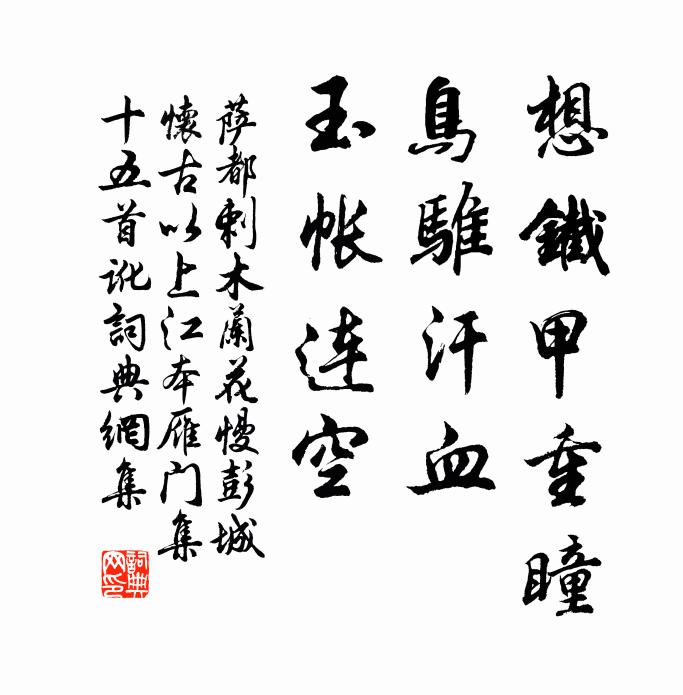 想鐵甲重瞳
烏騅汗血
玉帳連空
萨都剌木蘭花慢彭城
懷古以上江本雁门集
十五首訛詞典網集
詞典
网印